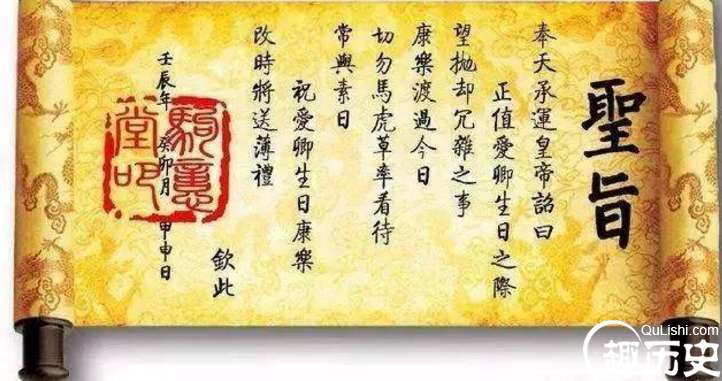 聖旨
奉天承運皇帝詔曰
正值愛卿生日之際
望拋却冗雜之事
康樂渡過今日
切勿馬虎草率看待
常與素日
祝愛卿生日康樂
改時將送薄禮
欽此
壬辰年 癸卯月 甲申日
QuLishi.com
趣历史